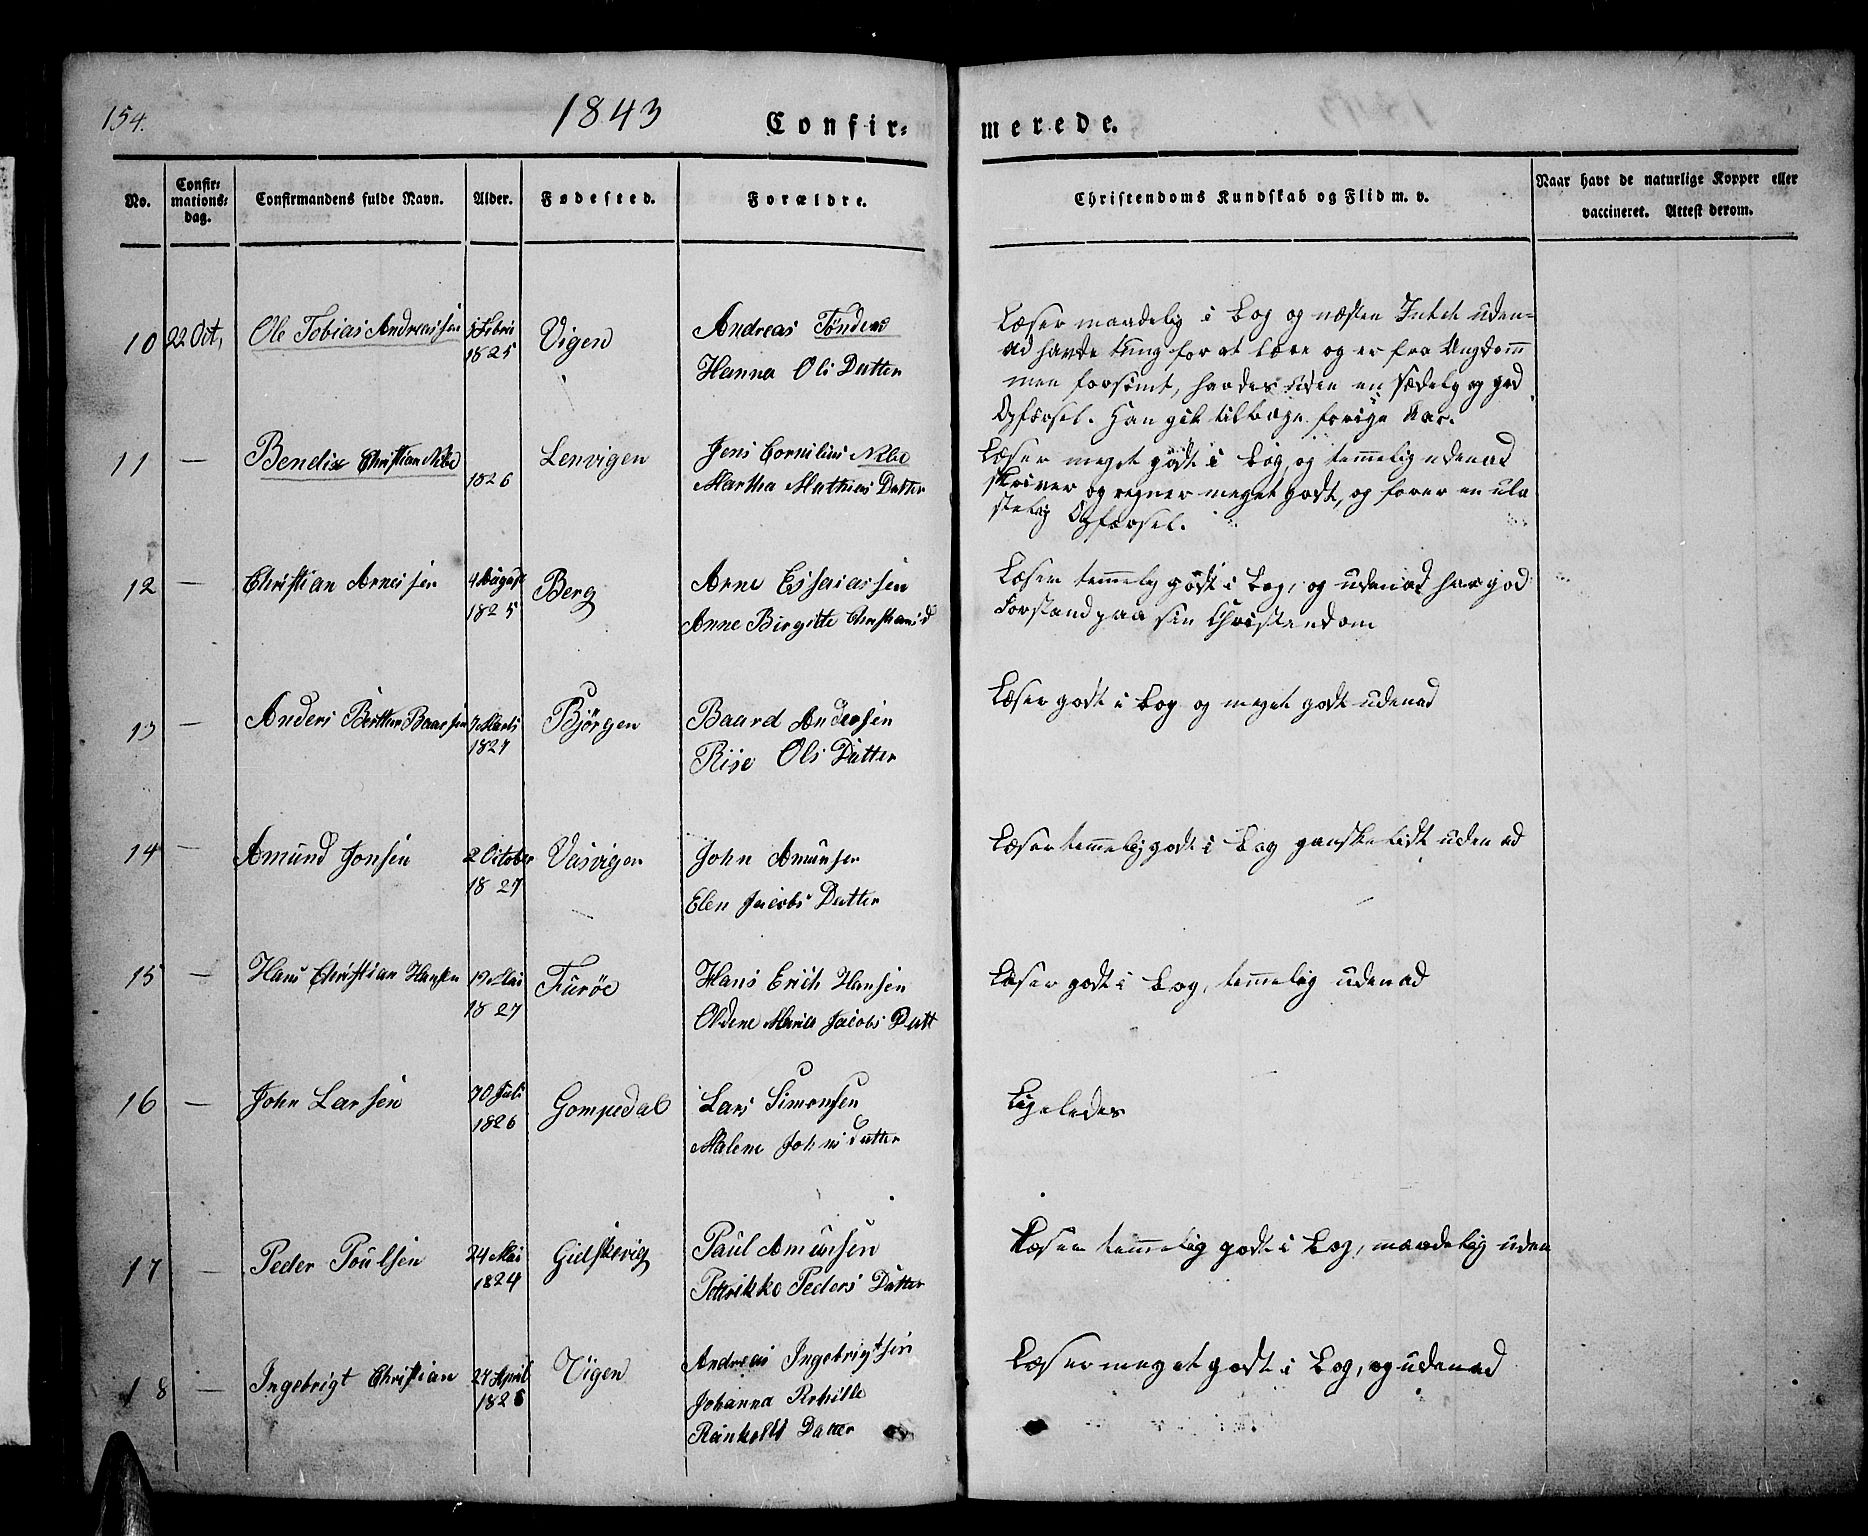 154.
1843
Confir=
merede.
No.
Confir=
mations=
dag.
Confirmandens fulde Navn.
Alder.
Fødested.
Forældre.
Christendoms Kundskab og Flid m. v.
Naar havt de naturlige Kopper eller
vaccineret. Attest derom.
10 22 Oct, Ole Tobias Andreassen Febri 1825 Vigen
Andreas
Hanna Ols Datter
Læser maadelig i Bog og næsten Intet uden=
ad havde tung for at lære og er fra Ungdom̅
men forsømt, sædelig og god
Opførsel. Han gik tilbage forige Aar.
11 — Bendix Christian 1826 Lenvigen
Jens Cornelius
Martha Mathias Datter
Læser meget godt i Bog, og tem̅elig udenad
skriver og regner meget godt, og fører en ula
stelig Opførsel.
12 — Christian Arnessen 4 August 1825 Berg
Arne Essaiassen
Anne Birgitte Christians D
Læser tem̅elig godt i Bog, og udenad har god
Forstand paa sin Christendom
13 — Anders Baarsen 7 Marts 1827 Bjørgen
Baard Andersen
Risе Ols Datter
Læser godt i Bog og meget godt udenad
14 — Amund Jonsen 2 October 1827 Vasvigen
John Amunsen
Elen Jacobs Datter
Læser tem̅elig godt i Bog ganske lidt uden ad
15 — Hans Christian Hansen 19 Mai 1827 Furøe
Hans Erich Hansen
Oldene Maria Jacobs Datt
Læser godt i Bog, tem̅elig udenad
16 — John Larsen Juli 1826 Gompedal
Lars Simonsen
Malene Johns Datter
Ligeledes
17 — Peder Poulsen 24 Mai 1824 Gidskevig
Paul Amunsen
Petrikke Peders Datter
Læser tem̅elig godt i Bog, maadelig uden
18 — Ingebrigt Christian 24 April 1826 Vigen
Andreas Ingebrigtsen
Johanna
Reinholdt Datter
Læser meget godt i Bog, og udenad